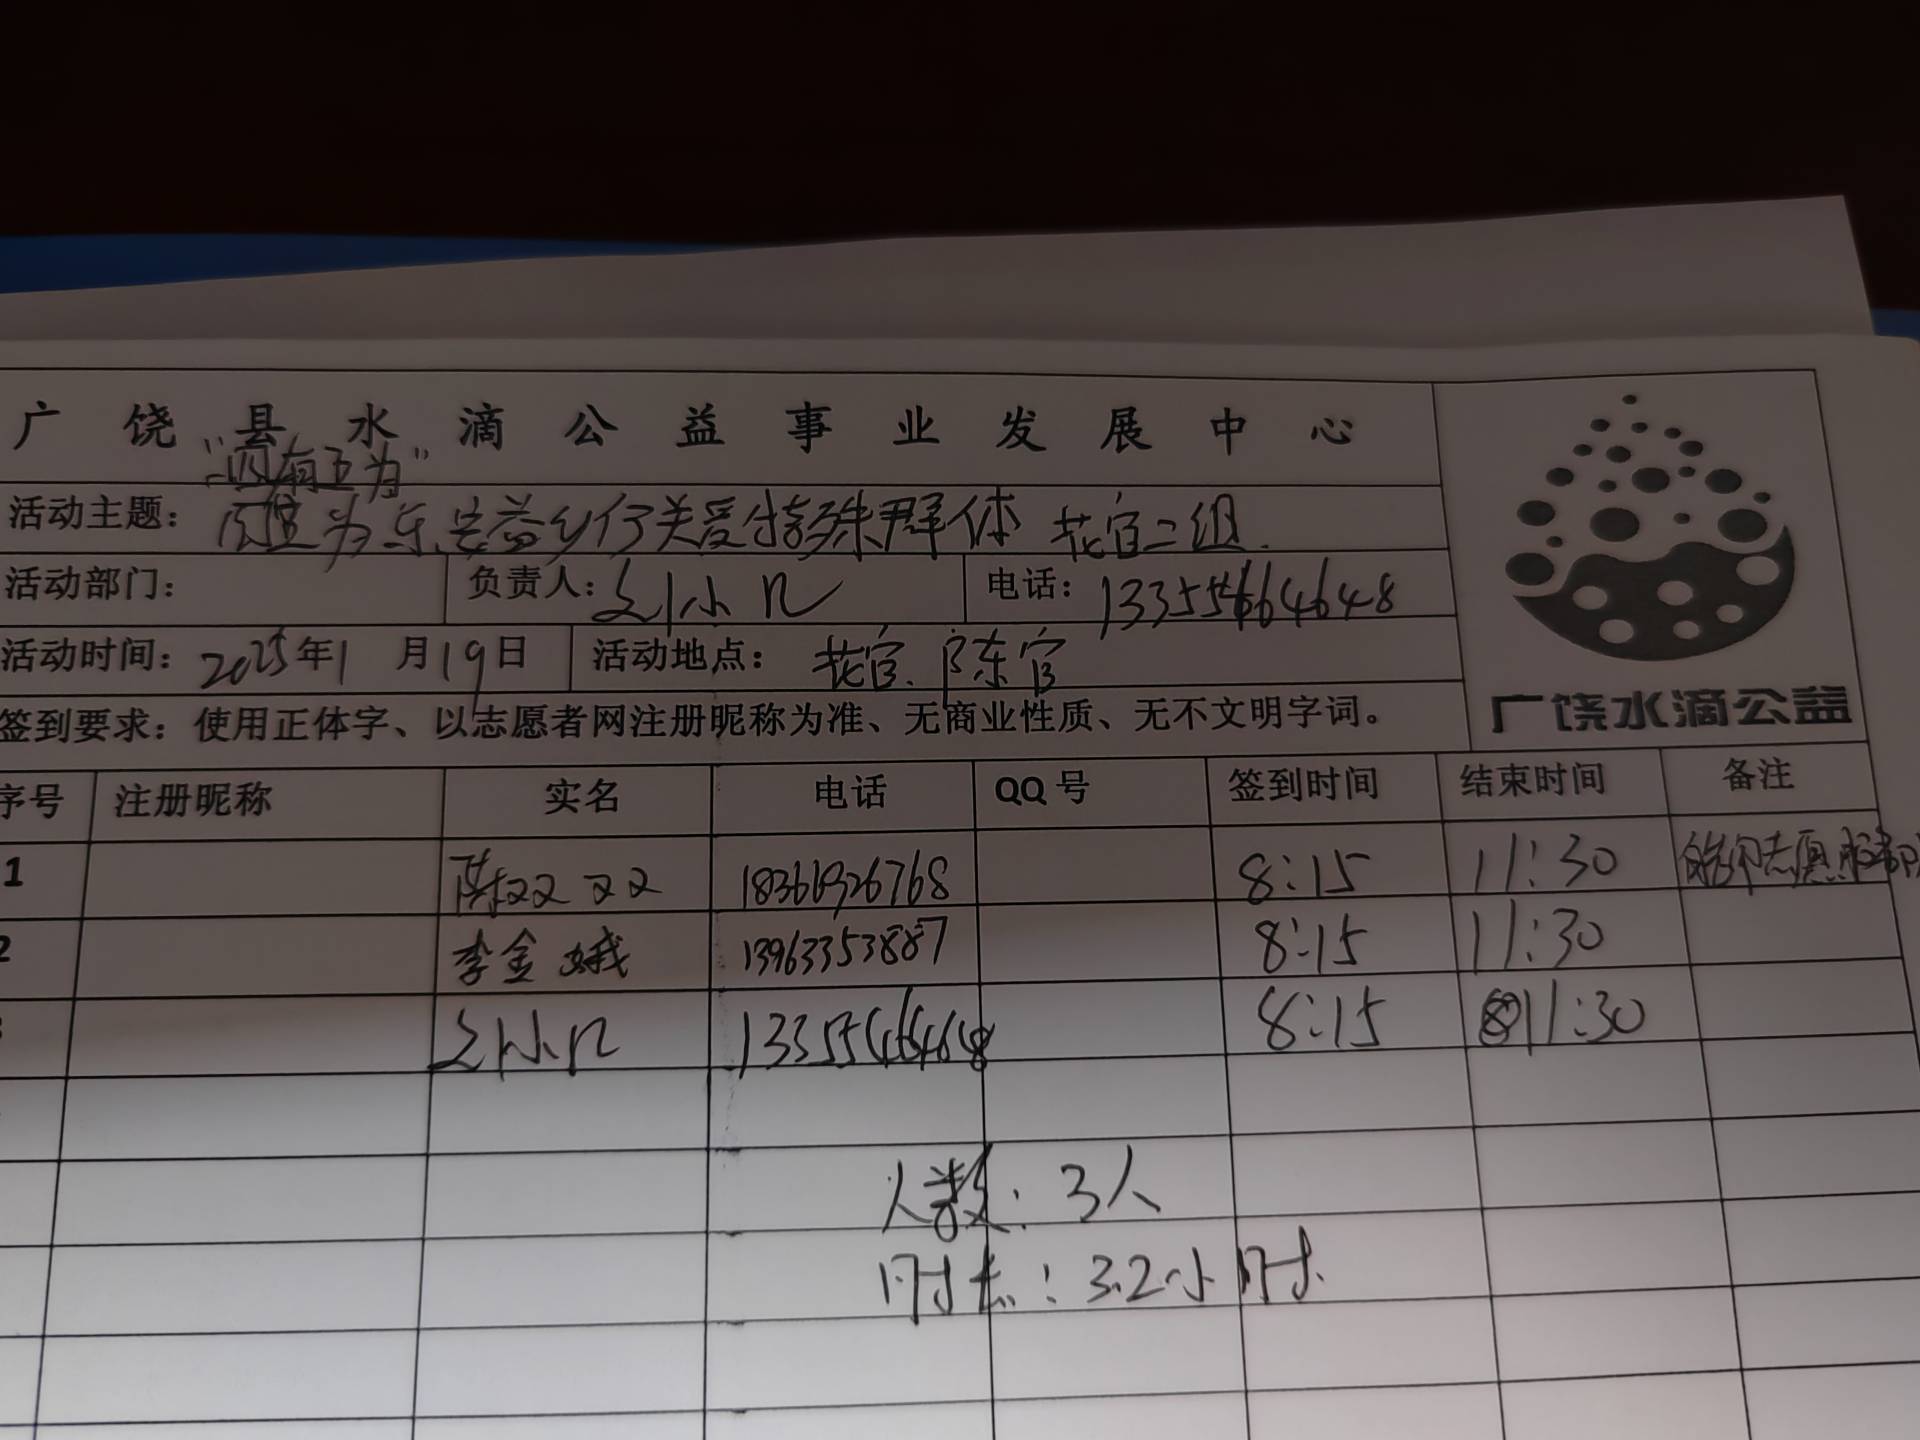 广饶县水滴公益事业发展中心
"四有五为"
活动主题：为乐,安益乡行关爱特殊群体 花官二组.
活动部门： 负责人：刘小几 电话：
活动时间：2025年1月19日 活动地点：花官.陈官
签到要求：使用正体字、以志愿者网注册昵称为准、无商业性质、无不文明字词。
广饶水滴公益
序号 注册昵称 实名 电话 QQ号 签到时间 结束时间 备注
1 陈双双 18366926768 8:15 11:30
2 李金娥 13963353887 8:15 11:30
刘小几 8:15 11:30
人数：3人
时长：3.2小时.